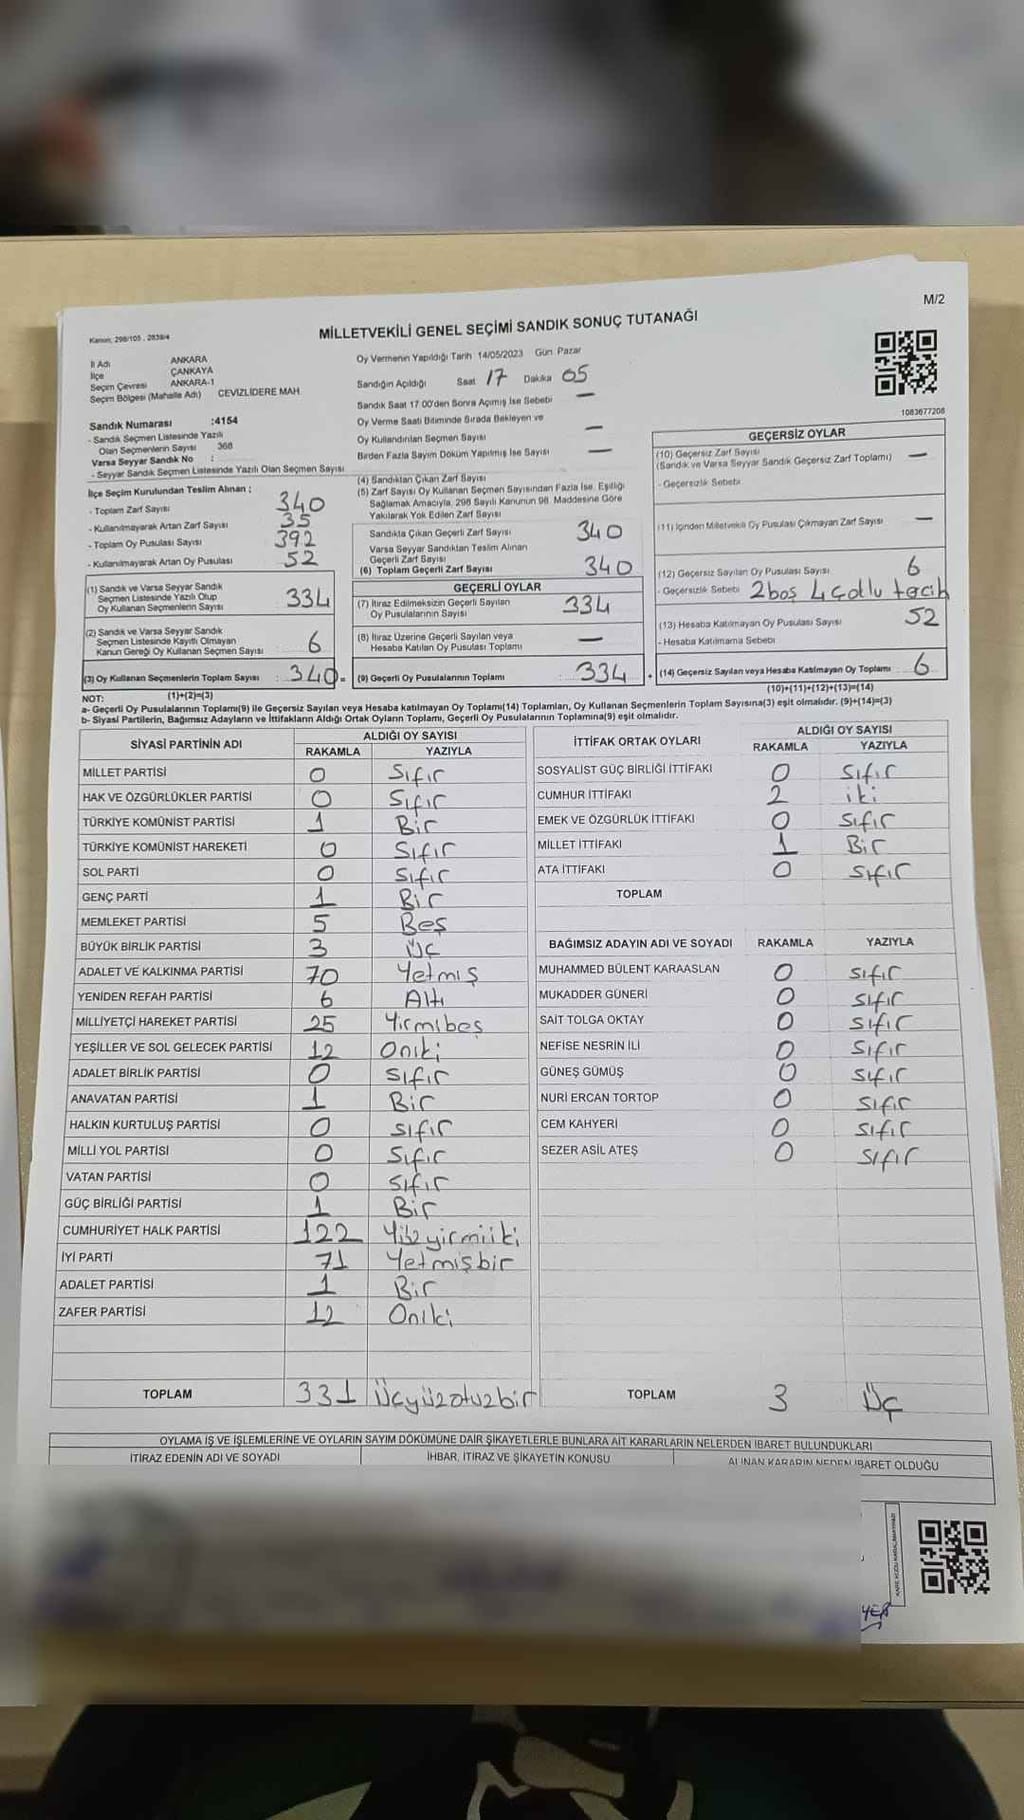 M/2
Kanun: 298/105 , 2839/4
MİLLETVEKİLİ GENEL SEÇİMİ SANDIK SONUÇ TUTANAĞI
İl Adı ANKARA
İlçe ÇANKAYA
Seçim Çevresi ANKARA-1
Seçim Bölgesi (Mahalle Adı) CEVİZLİDERE MAH
Sandık Numarası :4154
- Sandık Seçmen Listesinde Yazılı
Olan Seçmenlerin Sayısı 368
Varsa Seyyar Sandık No :
- Seyyar Sandık Seçmen Listesinde Yazılı Olan Seçmen Sayısı
Oy Vermenin Yapıldığı Tarih 14/05/2023 Gün Pazar
Sandığın Açıldığı Saat 17 Dakika 05
Sandık Saat 17.00'den Sonra Açılmış İse Sebebi —
Oy Verme Saati Bitiminde Sırada Bekleyen ve
Oy Kullandırılan Seçmen Sayısı —
Birden Fazla Sayım Döküm Yapılmış İse Sayısı —
1083677208
İlçe Seçim Kurulundan Teslim Alınan ;
- Toplam Zarf Sayısı 340
- Kullanılmayarak Artan Zarf Sayısı 35
- Toplam Oy Pusulası Sayısı 392
- Kullanılmayarak Artan Oy Pusulası 52
(1) Sandık ve Varsa Seyyar Sandık
Seçmen Listesinde Yazılı Olup
Oy Kullanan Seçmenlerin Sayısı 334
(2) Sandık ve Varsa Seyyar Sandık
Seçmen Listesinde Kayıtlı Olmayan
Kanun Gereği Oy Kullanan Seçmen Sayısı 6
(3) Oy Kullanan Seçmenlerin Toplam Sayısı : 340 =
(4) Sandıktan Çıkan Zarf Sayısı
(5) Zarf Sayısı Oy Kullanan Seçmen Sayısından Fazla İse, Eşitliği
Sağlamak Amacıyla, 298 Sayılı Kanunun 98. Maddesine Göre
Yakılarak Yok Edilen Zarf Sayısı
Sandıkta Çıkan Geçerli Zarf Sayısı 340
Varsa Seyyar Sandıktan Teslim Alınan
Geçerli Zarf Sayısı
(6) Toplam Geçerli Zarf Sayısı 340
GEÇERLİ OYLAR
(7) İtiraz Edilmeksizin Geçerli Sayılan
Oy Pusulalarının Sayısı 334
(8) İtiraz Üzerine Geçerli Sayılan veya
Hesaba Katılan Oy Pusulası Toplamı —
(9) Geçerli Oy Pusulalarının Toplamı : 334 +
GEÇERSİZ OYLAR
(10) Geçersiz Zarf Sayısı
(Sandık ve Varsa Seyyar Sandık Geçersiz Zarf Toplamı) —
- Geçersizlik Sebebi
(11) İçinden Milletvekili Oy Pusulası Çıkmayan Zarf Sayısı —
(12) Geçersiz Sayılan Oy Pusulası Sayısı 6
- Geçersizlik Sebebi 2 boş 4 çoklu tercih
(13) Hesaba Katılmayan Oy Pusulası Sayısı 52
- Hesaba Katılmama Sebebi
(14) Geçersiz Sayılan veya Hesaba Katılmayan Oy Toplamı 6
NOT: (1)+(2)=(3) (10)+(11)+(12)+(13)=(14)
a- Geçerli Oy Pusulalarının Toplamı(9) ile Geçersiz Sayılan veya Hesaba katılmayan Oy Toplamı(14) Toplamları, Oy Kullanan Seçmenlerin Toplam Sayısına(3) eşit olmalıdır. (9)+(14)=(3)
b- Siyasi Partilerin, Bağımsız Adayların ve İttifakların Aldığı Ortak Oyların Toplamı, Geçerli Oy Pusulalarının Toplamına(9) eşit olmalıdır.
SİYASİ PARTİNİN ADI ALDIĞI OY SAYISI
RAKAMLA YAZIYLA
MİLLET PARTİSİ 0 Sıfır
HAK VE ÖZGÜRLÜKLER PARTİSİ 0 Sıfır
TÜRKİYE KOMÜNİST PARTİSİ 1 Bir
TÜRKİYE KOMÜNİST HAREKETİ 0 Sıfır
SOL PARTİ 0 Sıfır
GENÇ PARTİ 1 Bir
MEMLEKET PARTİSİ 5 Beş
BÜYÜK BİRLİK PARTİSİ 3 Üç
ADALET VE KALKINMA PARTİSİ 70 Yetmiş
YENİDEN REFAH PARTİSİ 6 Altı
MİLLİYETÇİ HAREKET PARTİSİ 25 Yirmibeş
YEŞİLLER VE SOL GELECEK PARTİSİ 12 Oniki
ADALET BİRLİK PARTİSİ 0 Sıfır
ANAVATAN PARTİSİ 1 Bir
HALKIN KURTULUŞ PARTİSİ 0 Sıfır
MİLLİ YOL PARTİSİ 0 Sıfır
VATAN PARTİSİ 0 Sıfır
GÜÇ BİRLİĞİ PARTİSİ 1 Bir
CUMHURİYET HALK PARTİSİ 122 Yüzyirmiiki
İYİ PARTİ 71 Yetmişbir
ADALET PARTİSİ 1 Bir
ZAFER PARTİSİ 12 Oniki
TOPLAM 331 Üçyüzotuzbir
İTTİFAK ORTAK OYLARI ALDIĞI OY SAYISI
RAKAMLA YAZIYLA
SOSYALİST GÜÇ BİRLİĞİ İTTİFAKI 0 Sıfır
CUMHUR İTTİFAKI 2 iki
EMEK VE ÖZGÜRLÜK İTTİFAKI 0 Sıfır
MİLLET İTTİFAKI 1 Bir
ATA İTTİFAKI 0 Sıfır
TOPLAM
BAĞIMSIZ ADAYIN ADI VE SOYADI RAKAMLA YAZIYLA
MUHAMMED BÜLENT KARAASLAN 0 Sıfır
MUKADDER GÜNERİ 0 Sıfır
SAİT TOLGA OKTAY 0 Sıfır
NEFİSE NESRİN İLİ 0 Sıfır
GÜNEŞ GÜMÜŞ 0 Sıfır
NURİ ERCAN TORTOP 0 Sıfır
CEM KAHYERİ 0 Sıfır
SEZER ASİL ATEŞ 0 Sıfır
TOPLAM 3 Üç
OYLAMA İŞ VE İŞLEMLERİNE VE OYLARIN SAYIM DÖKÜMÜNE DAİR ŞİKAYETLERLE BUNLARA AİT KARARLARIN NELERDEN İBARET BULUNDUKLARI
İTİRAZ EDENİN ADI VE SOYADI İHBAR, İTİRAZ VE ŞİKAYETİN KONUSU ALINAN KARARIN NEDEN İBARET OLDUĞU